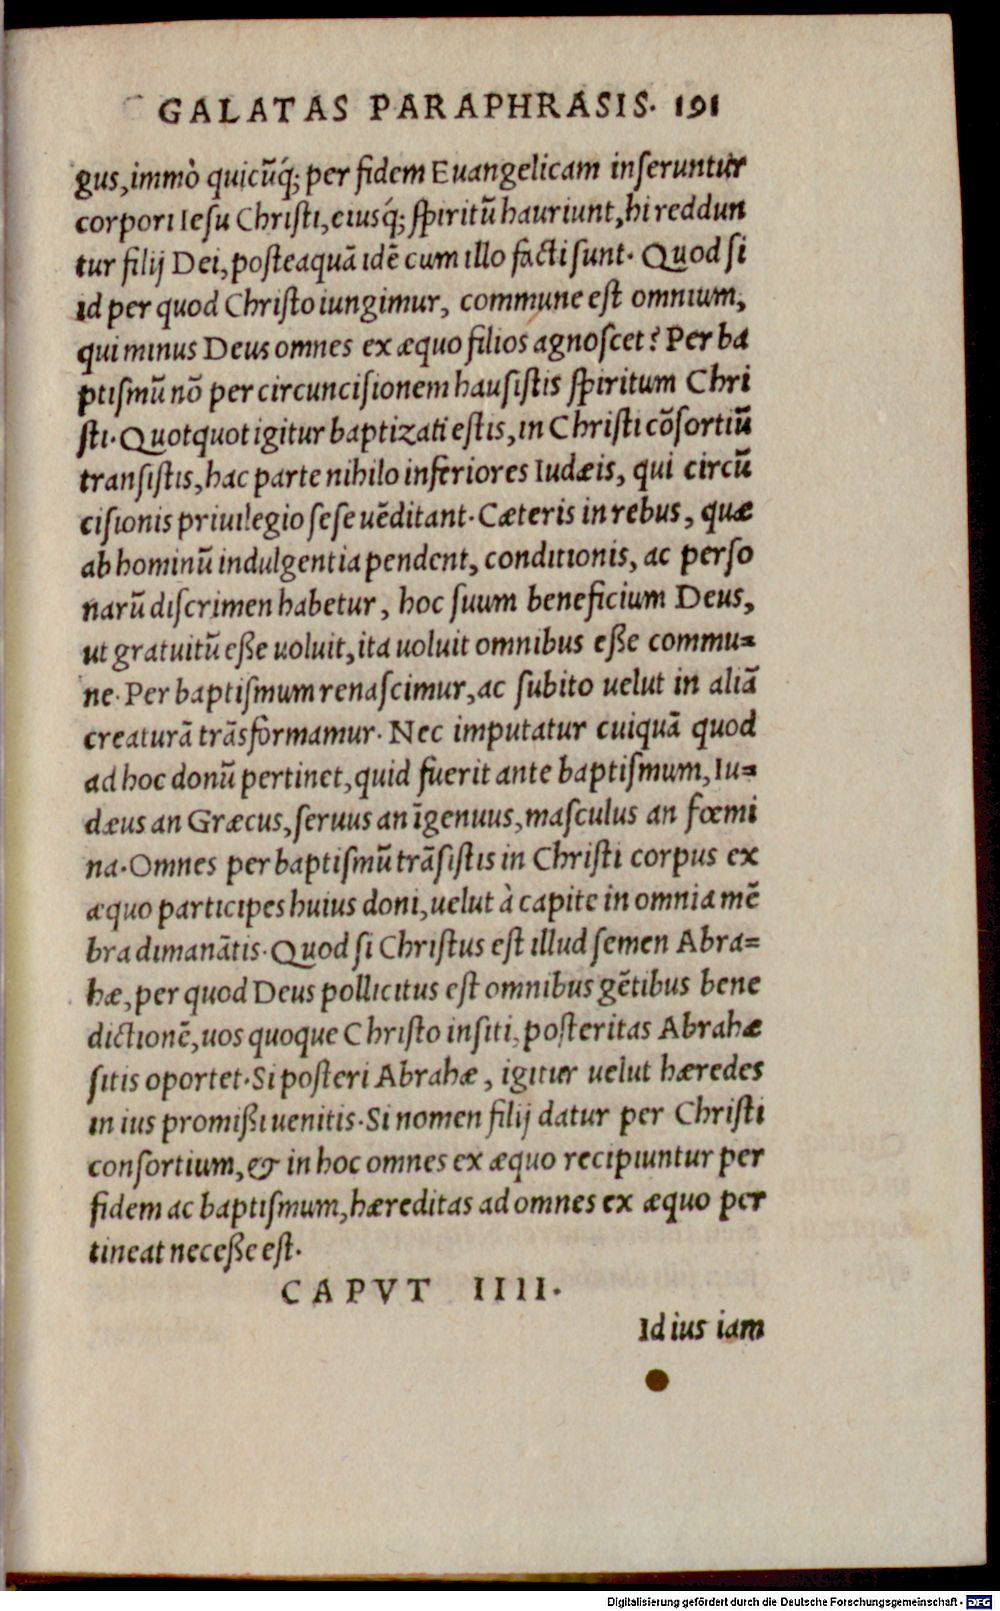 GALATAS PARAPHRASIS. 191
gus, immò quicũq́; per fidem Euangelicam inseruntur
corpori Iesu Christi, eiusq́; spiritũ hauriunt, hi reddun
tur filij Dei, posteaquã idẽ cum illo facti sunt. Quod si
id per quod Christo iungimur, commune est omnium,
qui minus Deus omnes ex æquo filios agnoscet? Per ba
ptismũ nõ per circuncisionem hausistis spiritum Chri
sti. Quotquot igitur baptizati estis, in Christi cõsortiũ
transistis, hac parte nihilo inferiores Iudæis, qui circũ
cisionis priuilegio sese uẽditant. Cæteris in rebus, quæ
ab hominũ indulgentia pendent, conditionis, ac perso
narũ discrimen habetur, hoc suum beneficium Deus,
ut gratuitũ eße uoluit, ita uoluit omnibus eße commu=
ne. Per baptismum renascimur, ac subito uelut in aliã
creaturã trãsformamur. Nec imputatur cuiquã quod
ad hoc donũ pertinet, quid fuerit ante baptismum, Iu=
dæus an Græcus, seruus an ĩgenuus, masculus an fœmi
na. Omnes per baptismũ trãsistis in Christi corpus ex
æquo participes huius doni, uelut à capite in omnia mẽ
bra dimanãtis. Quod si Christus est illud semen Abra=
hæ, per quod Deus pollicitus est omnibus gẽtibus bene
dictionẽ, uos quoque Christo insiti, posteritas Abrahæ
sitis oportet. Si posteri Abrahæ, igitur uelut hæredes
in ius promißi uenitis. Si nomen filij datur per Christi
consortium, & in hoc omnes ex æquo recipiuntur per
fidem ac baptismum, hæreditas ad omnes ex æquo per
tineat neceße est.
CAPVT IIII.
Id ius iam
Digitalisierung gefördert durch die Deutsche Forschungsgemeinschaft - DFG